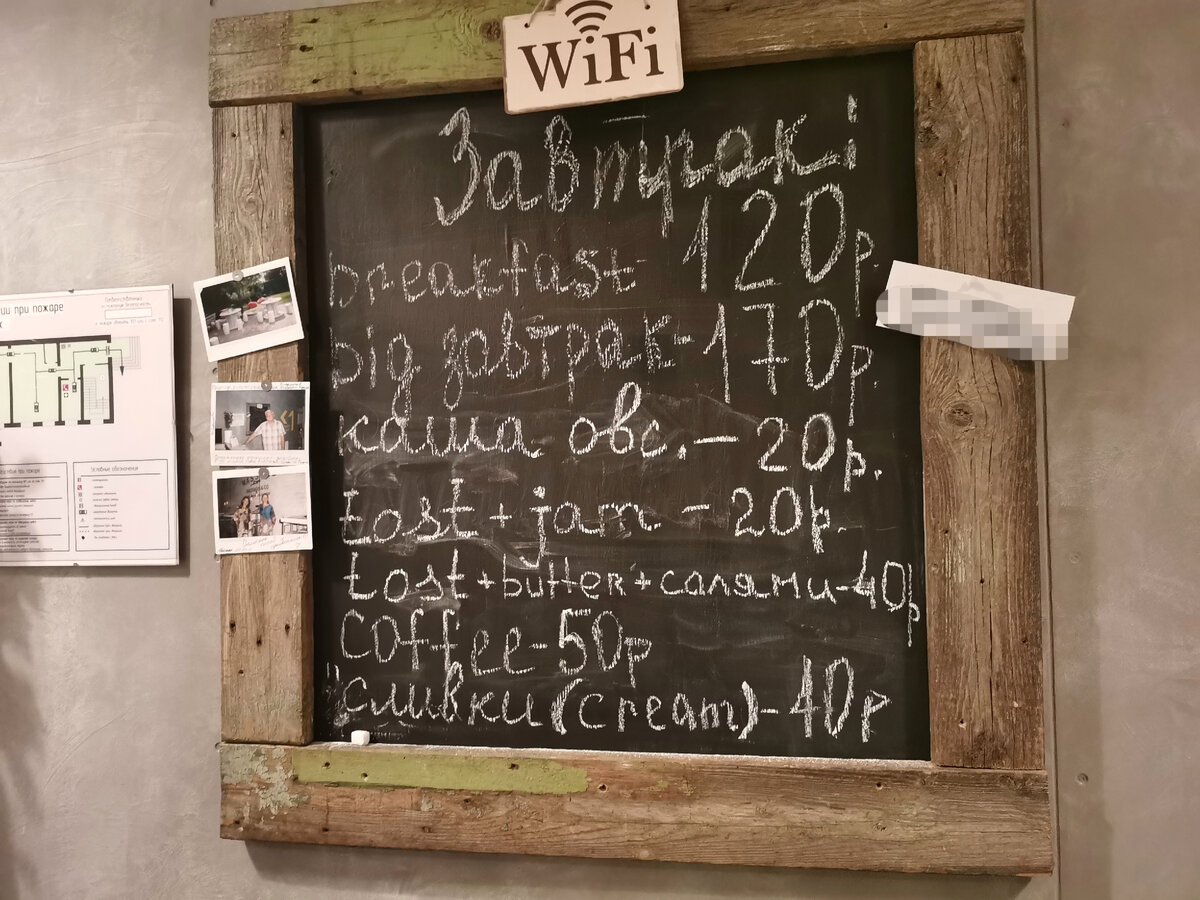 WiFi
Завтракi
breakfast - 120р.
big завтрак - 170р.
каша овс. - 20р.
tost + jam - 20р.
tost + butter + салями - 40р
coffee - 50р
"сливки (cream) - 40р
ии при пожаре
Ответственный
Условные обозначения